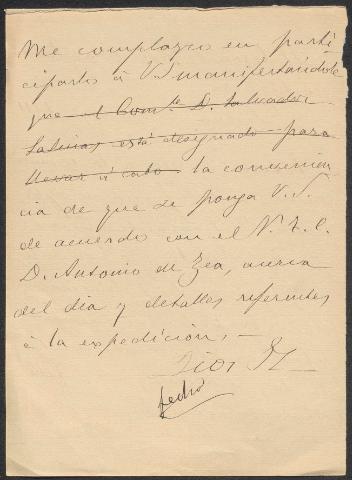 Me complazco en parti
ciparlo á V.S. manifestándole
que el Comte D. Salvador
Salinas está designado para
llevar á cabo la convenien
cia de que se ponga V.S.
de acuerdo con el N. F. C.
D. Antonio de Zea, acerca
del dia y detalles referentes
á la expedición, -
Dios
fecho